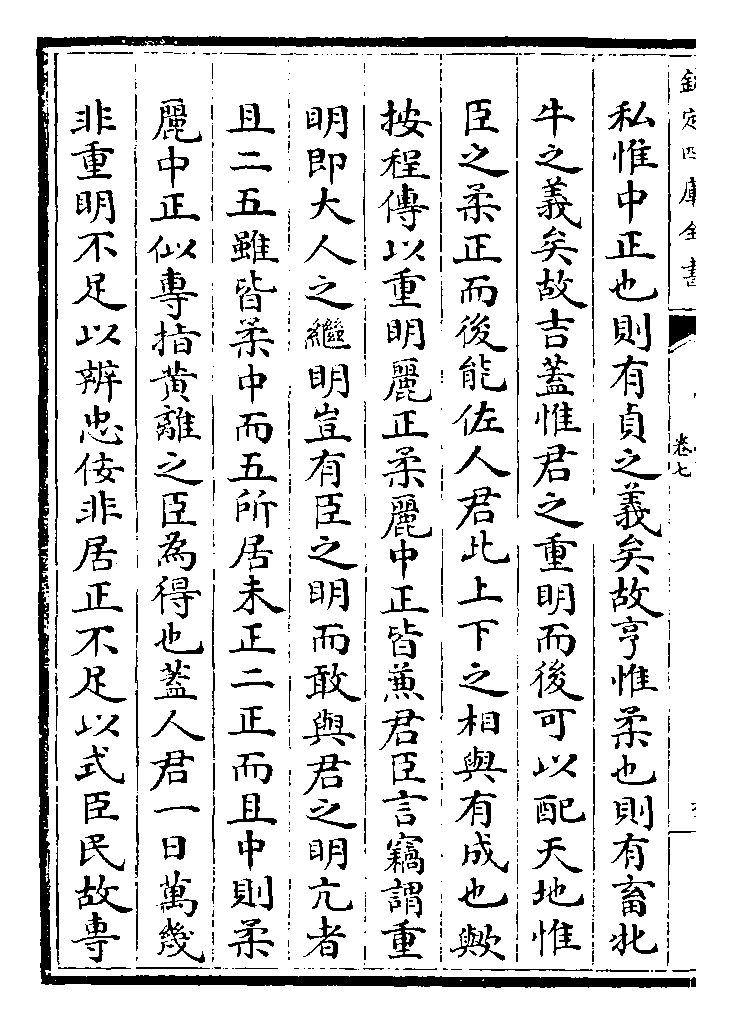 欽定四庫全書
卷七
私惟中正也則有貞之義矣故亨惟柔也則有畜牝
牛之義矣故吉蓋惟君之重明而後可以配天地惟
臣之柔正而後能佐人君此上下之相與有成也歟
按程傳以重明麗正柔麗中正皆兼君臣言竊謂重
明即大人之繼明豈有臣之明而敢與君之明亢者
且二五雖皆柔中而五所居未正二正而且中則柔
麗中正似專指黄離之臣為得也蓋人君一日萬幾
非重明不足以辨忠佞非居正不足以式臣民故專